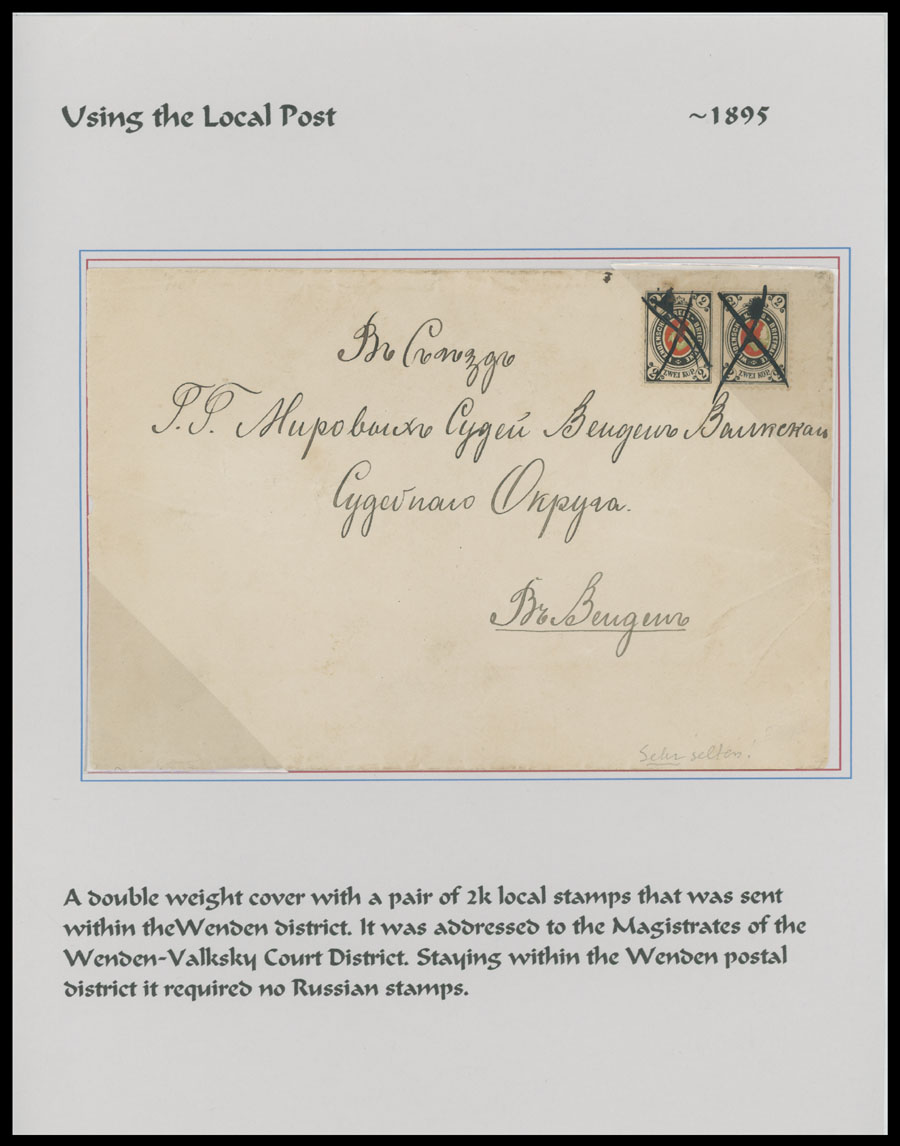 Using the Local Post ~1895
2 2
WENDENSCHE KREIS BRIEFPOST
2 ZWEI KOP. 2
2 2
2 ZWEI KOP. 2
Въ Съѣздъ
Г.Г. Мировыхъ Судей Венденъ Валкскаго
Судебнаго Округа.
Въ Венденъ
Sehr selten!
A double weight cover with a pair of 2k local stamps that was sent
within theWenden district. It was addressed to the Magistrates of the
Wenden-Valksky Court District. Staying within the Wenden postal
district it required no Russian stamps.